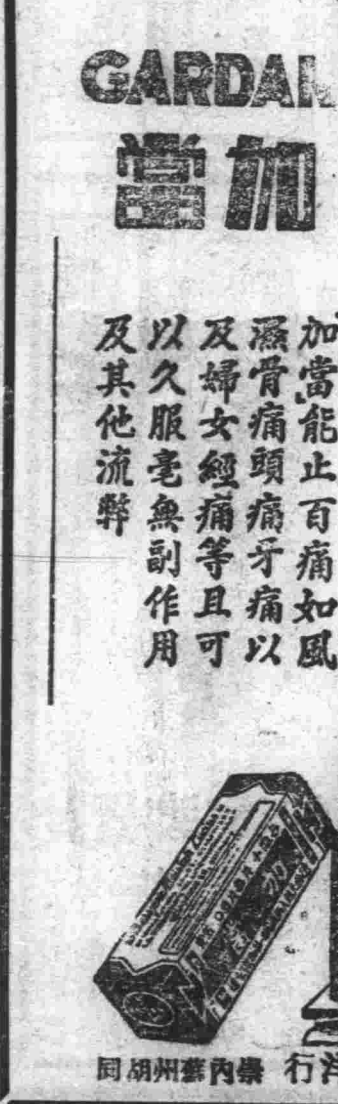 GARDAN
加當
加當能止百痛如風
濕骨痛頭痛牙痛以
及婦女經痛等且可
以久服毫無副作用
及其他流弊
加當
洋行 崇內蘇州胡同